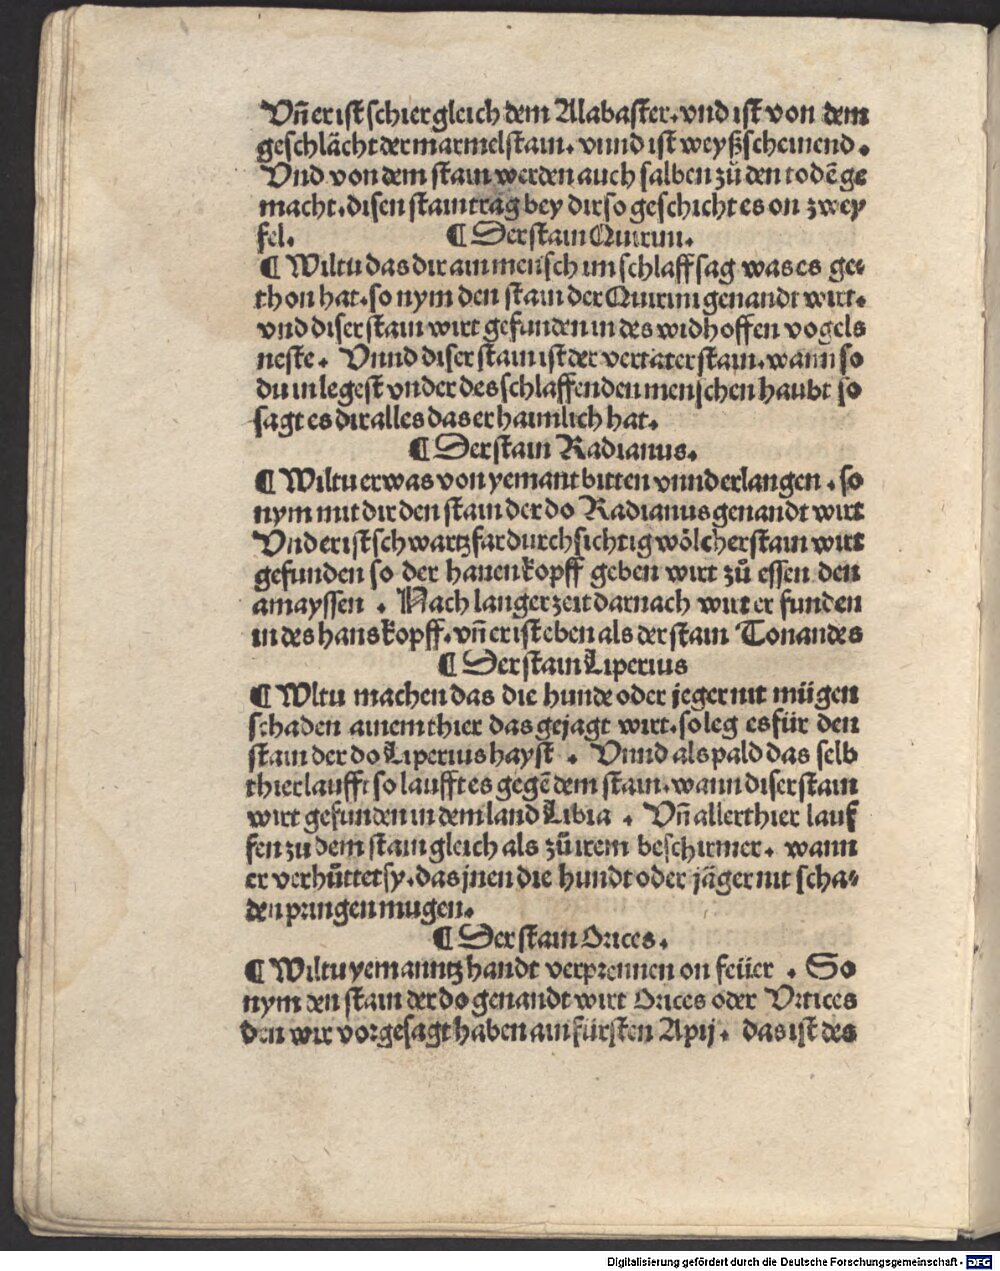 Vñ er ist schier gleich dem Alabaster. vnd ist von dem
geschlächt der marmelstain. vnnd ist weyßscheinend.
Vnd von dem stain werden auch salben zů den todẽ ge
macht. disen stain trag bey dir so geschicht es on zwey
fel. ¶ Der stain Quirini.
¶ Wiltu das dir ain mensch im schlaff sag was es ge⸗
thon hat. so nym den stain der Quirini genandt wirt.
vnd diser stain wirt gefunden in des widhoffen vogels
neste. Vnnd diser stain ist der verräter stain. wann so
du in legest vnder des schlaffenden menschen haubt so
sagt es dir alles das er haimlich hat.
¶ Der stain Radianus.
¶ Wiltu erwas von yemant bitten vnnd erlangen. so
nym mit dir den stain der do Radianus genandt wirt
Vnd er ist schwartzfar durchsichtig wölcher stain wirt
gefunden so der hanenkopff geben wirt zů essen den
amayssen. Nach langer zeit darnach wirt er funden
in des hans kopff. vñ er ist eben als der stain Tonandes
¶ Der stain Liperius
¶ Wltu machen das die hunde oder jeger nit mügen
schaden ainem thier das gejagt wirt. so leg es für den
stain der do Liperius hayst. Vnnd als pald das selb
thier laufft so laufft es gegẽ dem stain. wann diser stain
wirt gefunden in dem land Libia. Vñ aller thier lauf
fen zu dem stain gleich als zů irem beschirmer. wann
er verhůttet sy. das jnen die hundt oder jäger nit scha⸗
den pringen mugen.
¶ Der stain Orices.
¶ Wiltu yemanntz handt verprennen on feüer. So
nym den stain der do genandt wirt Orices oder Vrtices
den wir vorgesagt haben ain fürsten Apij. das ist des
Digitalisierung gefördert durch die Deutsche Forschungsgemeinschaft - DFG